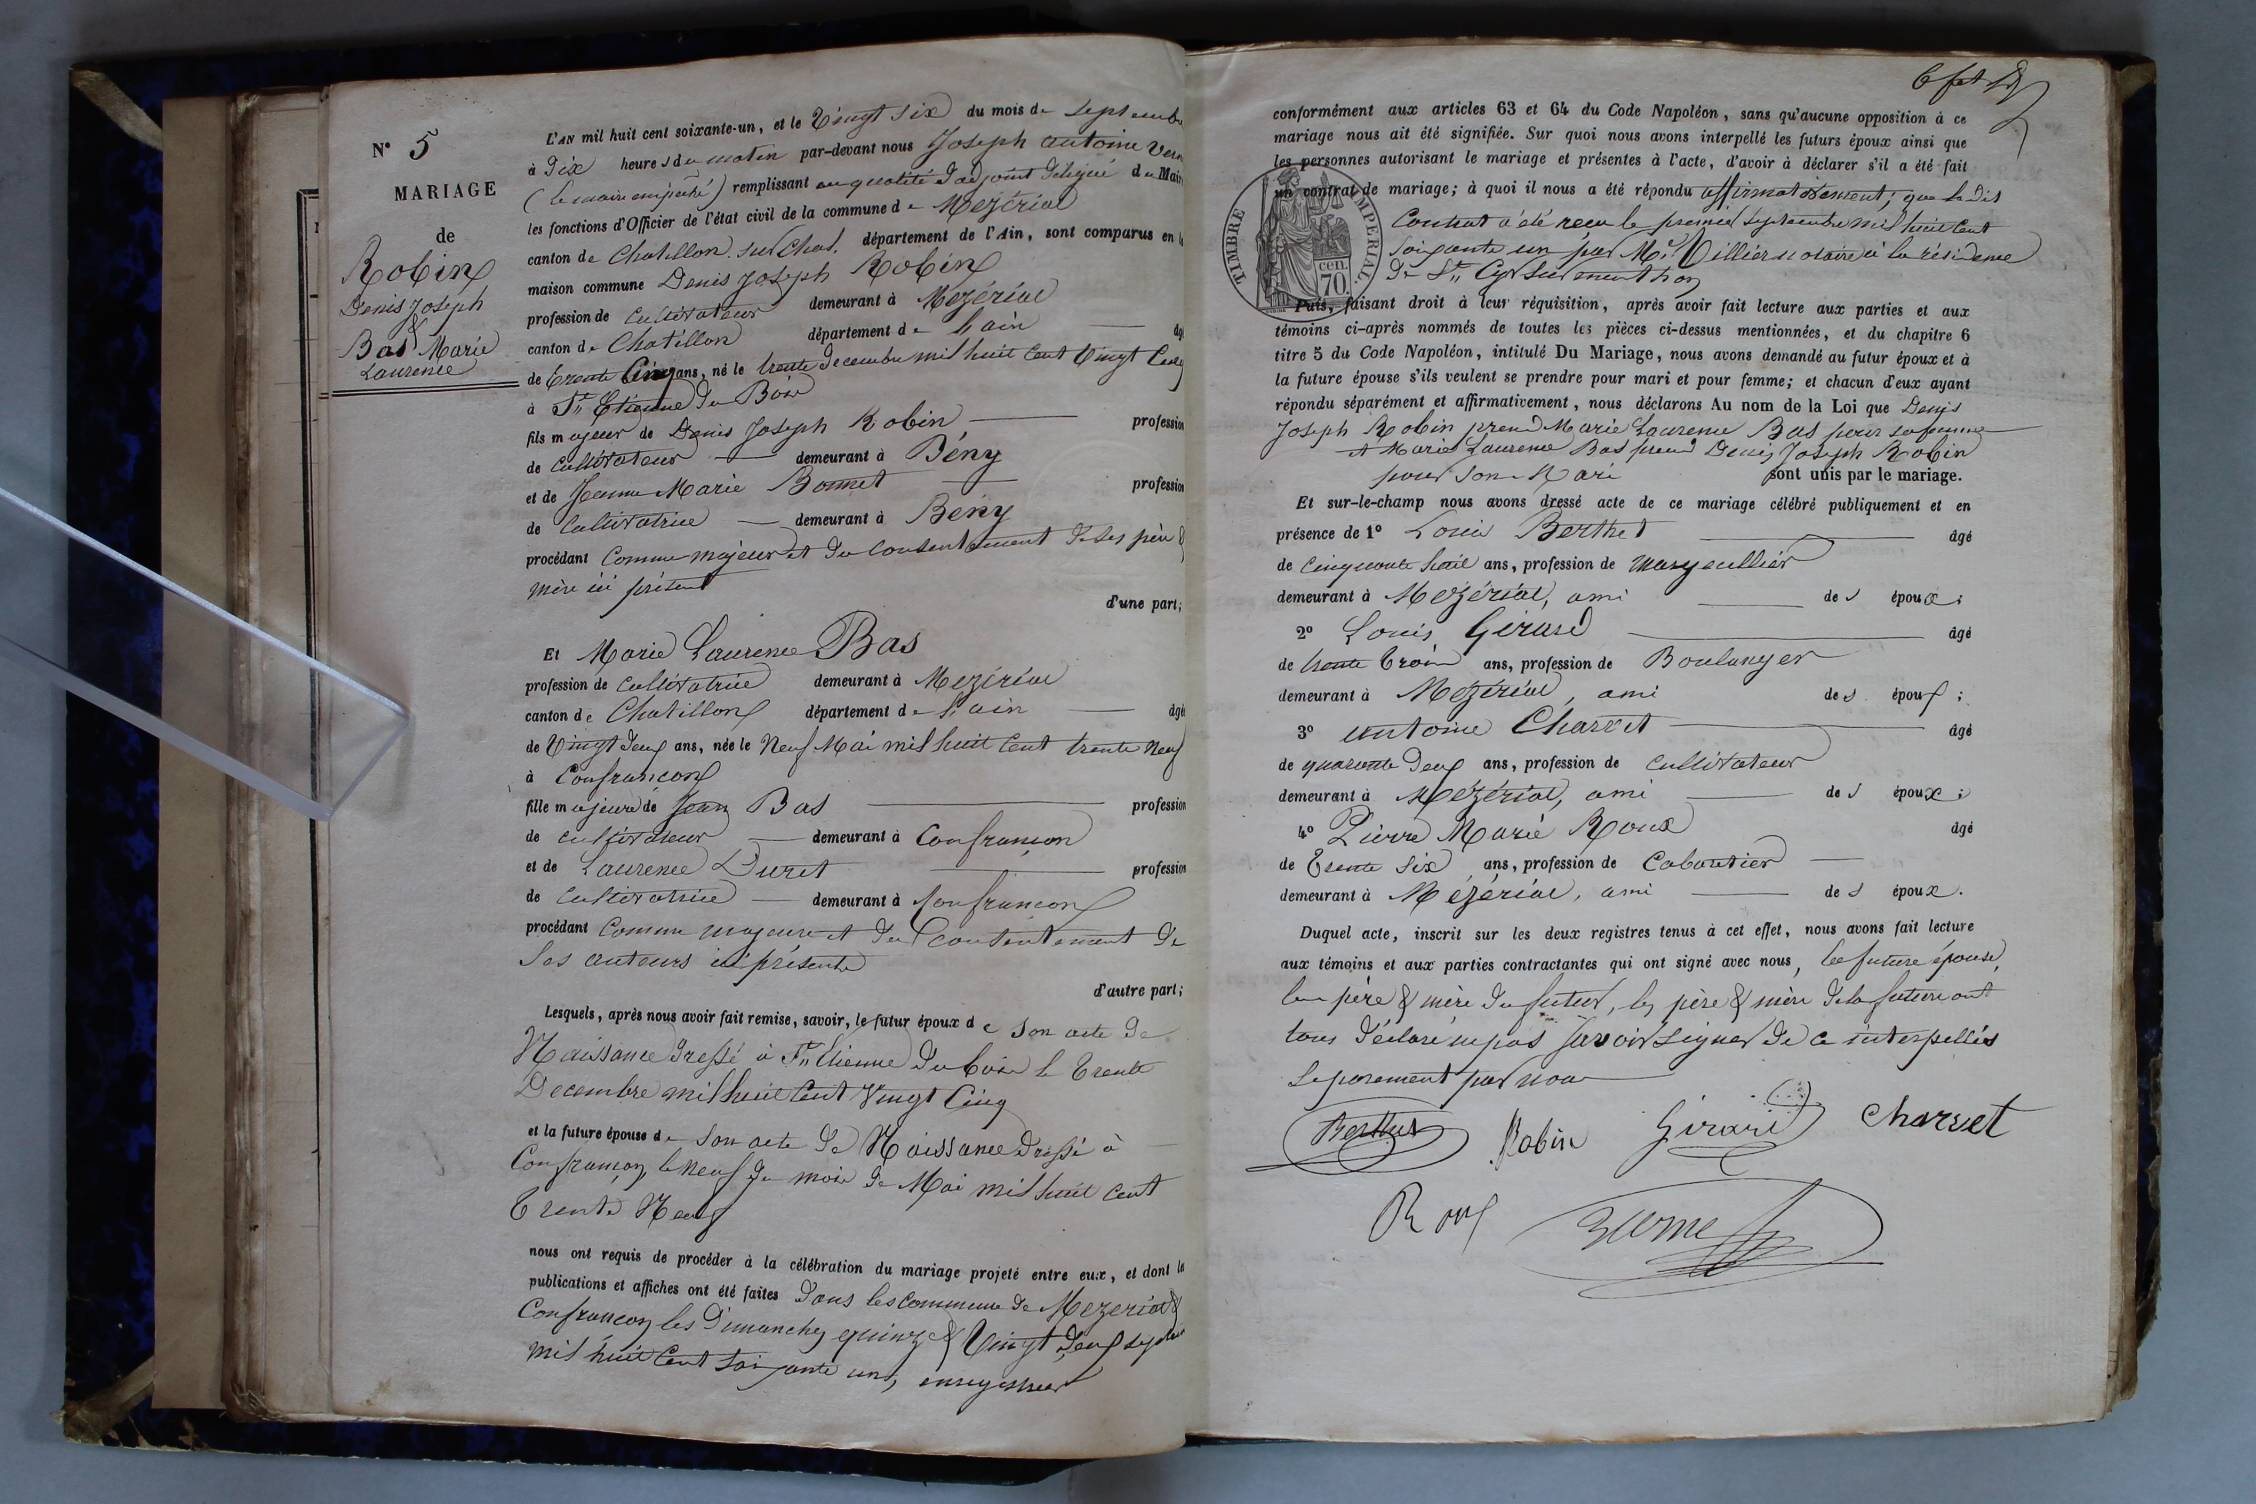 N° 5
MARIAGE
de
Robin
Denis Joseph
&
Bas Marie
Laurence
L'AN mil huit cent soixante-un, et le Vingt six du mois de Septembre
à Dix heures du matin par-devant nous Joseph antoine Vern
(le maire empêché) remplissant en qualité d'adjoint délégué du Maire
les fonctions d'Officier de l'état civil de la commune de Mezériat
canton de Chatillon sur Chal. département de l'Ain, sont comparus en la
maison commune Denis Joseph Robin
profession de Cultivateur demeurant à Mezériat
canton de Chatillon département de l'ain âgé
de Trente Cinq ans, né le trente Decembre mil huit Cent Vingt Cinq
à St Etienne du Bois
fils majeur de Denis Joseph Robin profession
de Cultivateur demeurant à Bény
et de Jeanne Marie Bonnet profession
de Cultivatrice demeurant à Bény
procédant Comme majeur et du Consentement de ses père &
mère ici présent
d'une part;
Et Marie Laurence Bas
profession de Cultivatrice demeurant à Mezériat
canton de Chatillon département de l'ain âgée
de Vingt Deux ans, née le Neuf Mai mil huit Cent trente Neuf
à Confrançon
fille majeure de Jean Bas profession
de Cultivateur demeurant à Confrançon
et de Laurence Duret profession
de Cultivatrice demeurant à Confrançon
procédant Comme majeure et du Consentement de
Ses auteurs ici présents
d'autre part;
Lesquels, après nous avoir fait remise, savoir, le futur époux de son acte de
Naissance Dressé à St Etienne du bois le Trente
Decembre mil huit Cent Vingt Cinq
et la future épouse de Son acte de Naissance Dressé à
Confrançon le Neuf du mois de Mai mil huit cent
Trente Neuf
nous ont requis de procéder à la célébration du mariage projeté entre eux, et dont la
publications et affiches ont été faites Dans les Commune de Mezeriat &
Confrançon les Dimanches quinze & Vingt Deux septembre
mil huit Cent Soixante un,
conformément aux articles 63 et 64 du Code Napoléon, sans qu'aucune opposition à ce
mariage nous ait été signifiée. Sur quoi nous avons interpellé les futurs époux ainsi que
les personnes autorisant le mariage et présentes à l'acte, d'avoir à déclarer s'il a été fait
un contrat de mariage; à quoi il nous a été répondu affirmativement; que le Dit
Contrat a été reçu le premier Septembre mil huit Cent
Soixante un par Me Villier notaire à la résidence
de St Cyr sur menthon
TIMBRE IMPERIAL
70 cen.
Puis, faisant droit à leur réquisition, après avoir fait lecture aux parties et aux
témoins ci-après nommés de toutes les pièces ci-dessus mentionnées, et du chapitre 6
titre 5 du Code Napoléon, intitulé Du Mariage, nous avons demandé au futur époux et à
la future épouse s'ils veulent se prendre pour mari et pour femme; et chacun d'eux ayant
répondu séparément et affirmativement, nous déclarons Au nom de la Loi que Denis
Joseph Robin prend Marie Laurence Bas pour sa femme
et Marie Laurence Bas prend Denis Joseph Robin
pour Son Mari sont unis par le mariage.
Et sur-le-champ nous avons dressé acte de ce mariage célébré publiquement et en
présence de 1° Louis Berthet âgé
de Cinquante huit ans, profession de marguillier
demeurant à Mezériat, ami des époux;
2° Louis Girard âgé
de trente trois ans, profession de Boulanger
demeurant à Mezériat, ami des époux;
3° antoine Charvet âgé
de quarante Deux ans, profession de Cultivateur
demeurant à Mezériat, ami des époux;
4° Pierre Marie Roux âgé
de Trente Six ans, profession de Cabaretier
demeurant à Mézériat, ami des époux.
Duquel acte, inscrit sur les deux registres tenus à cet effet, nous avons fait lecture
aux témoins et aux parties contractantes qui ont signé avec nous, la future épouse,
les père & mère du futur, les père & mère de la future ont
tous déclaré ne pas Savoir Signer de ce interpellés
Separement par nous
Berthet Robin Girard Charvet
Roux Verne